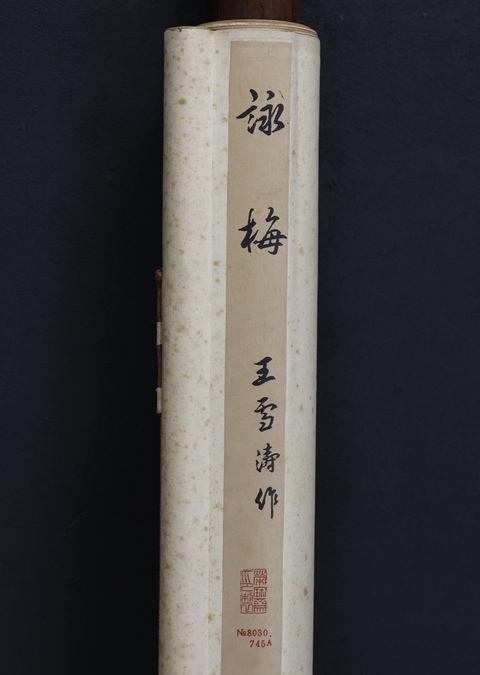 詠梅
王雪濤作
№8030.
745A